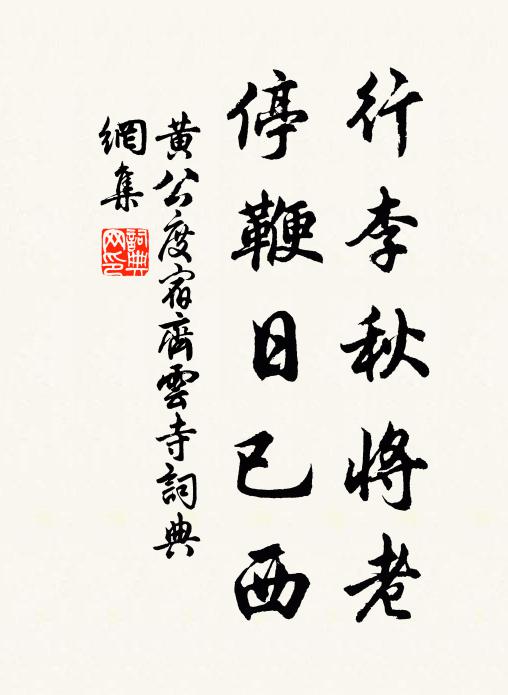 行李秋將老
停鞭日已西
黄公度宿齊雲寺詞典
網集
詞典
网印